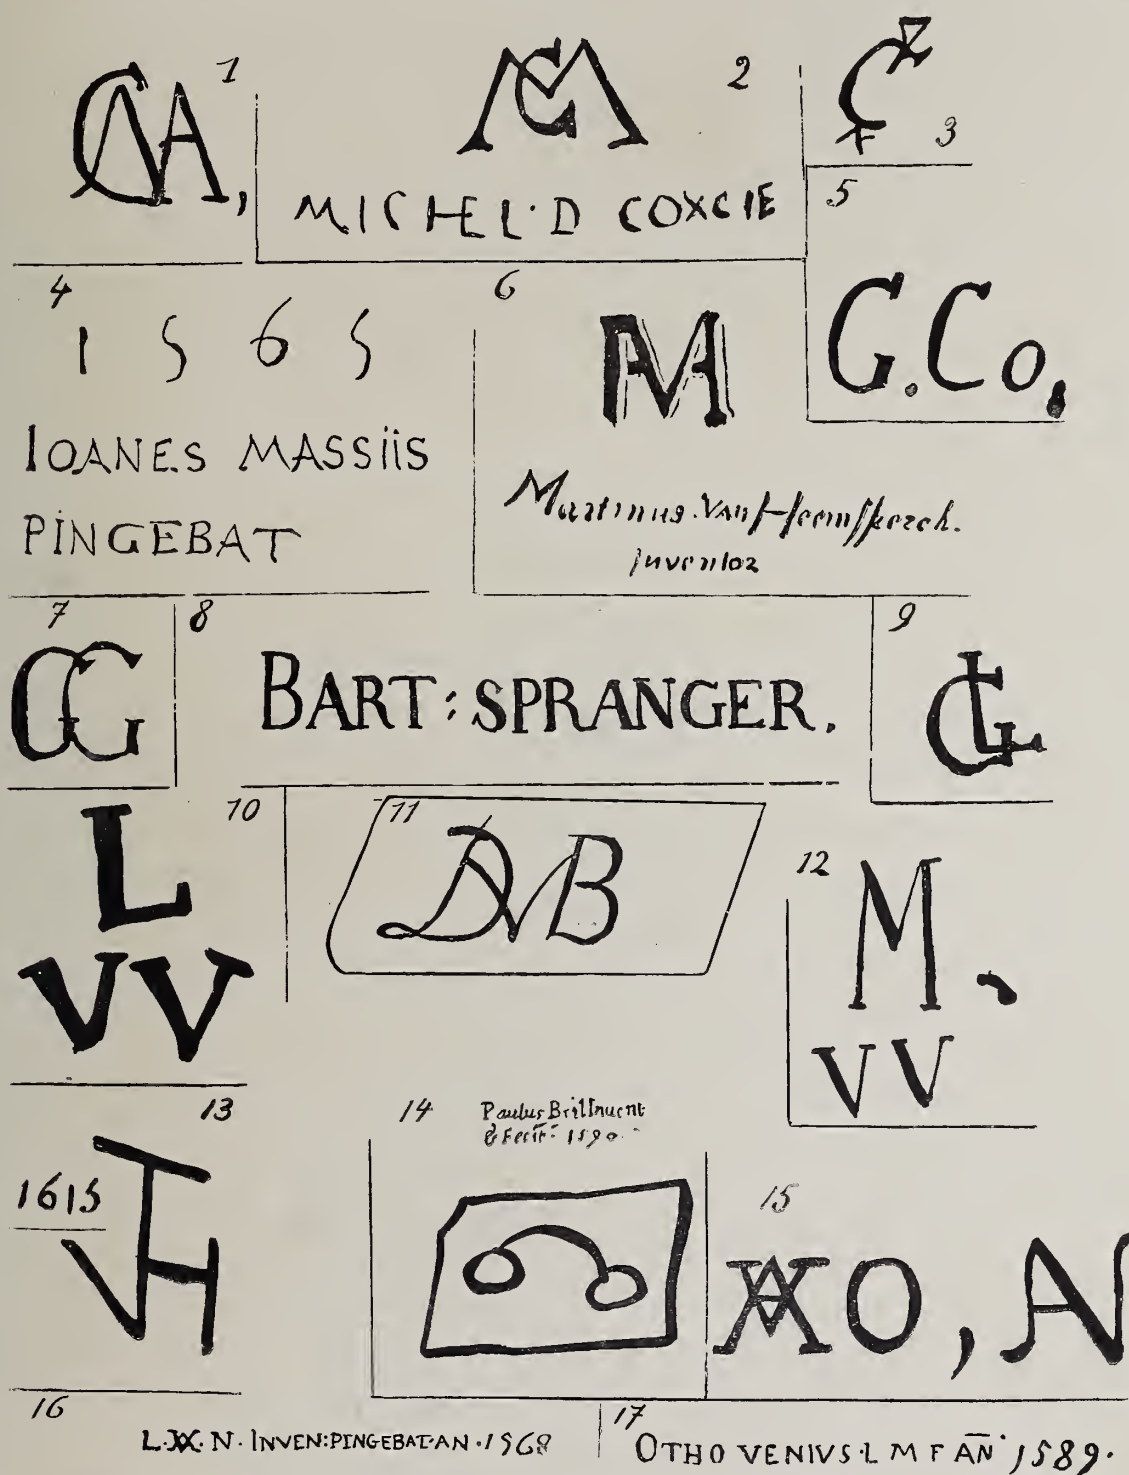 1
2
MICHEL·D COXCIE
3
4
1565
IOANES MASSiiS
PINGEBAT
5
G.Co.
6
Martinus.Van Heemskerck.
Inventor
7
8
BART: SPRANGER.
9
10
L
VV
11
DVB
12
M.
VV
13
1615
14
Paulus Brill
& Fecit 1590
15
O, N
16
L. N. INVEN:PINGEBAT·AN·1568
17
OTHO VENIVS·L M F AN 1589.